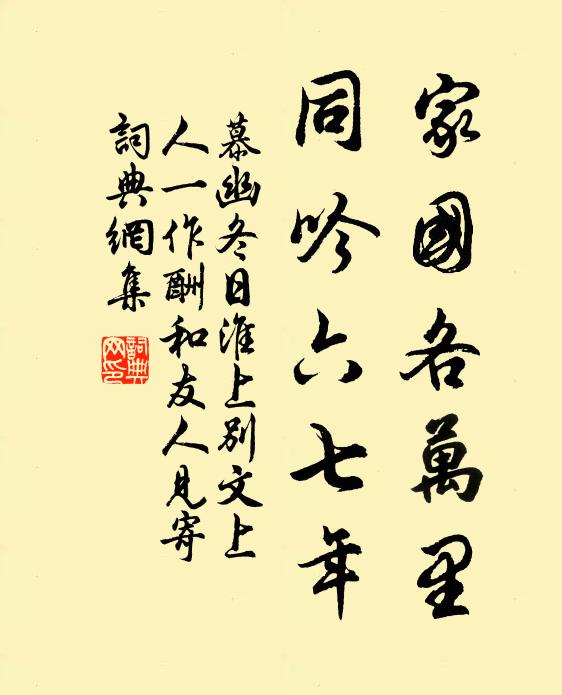 家國各萬里
同吟六七年
慕幽冬日淮上別文上
人一作酬和友人見寄
詞典網集
詞典网印